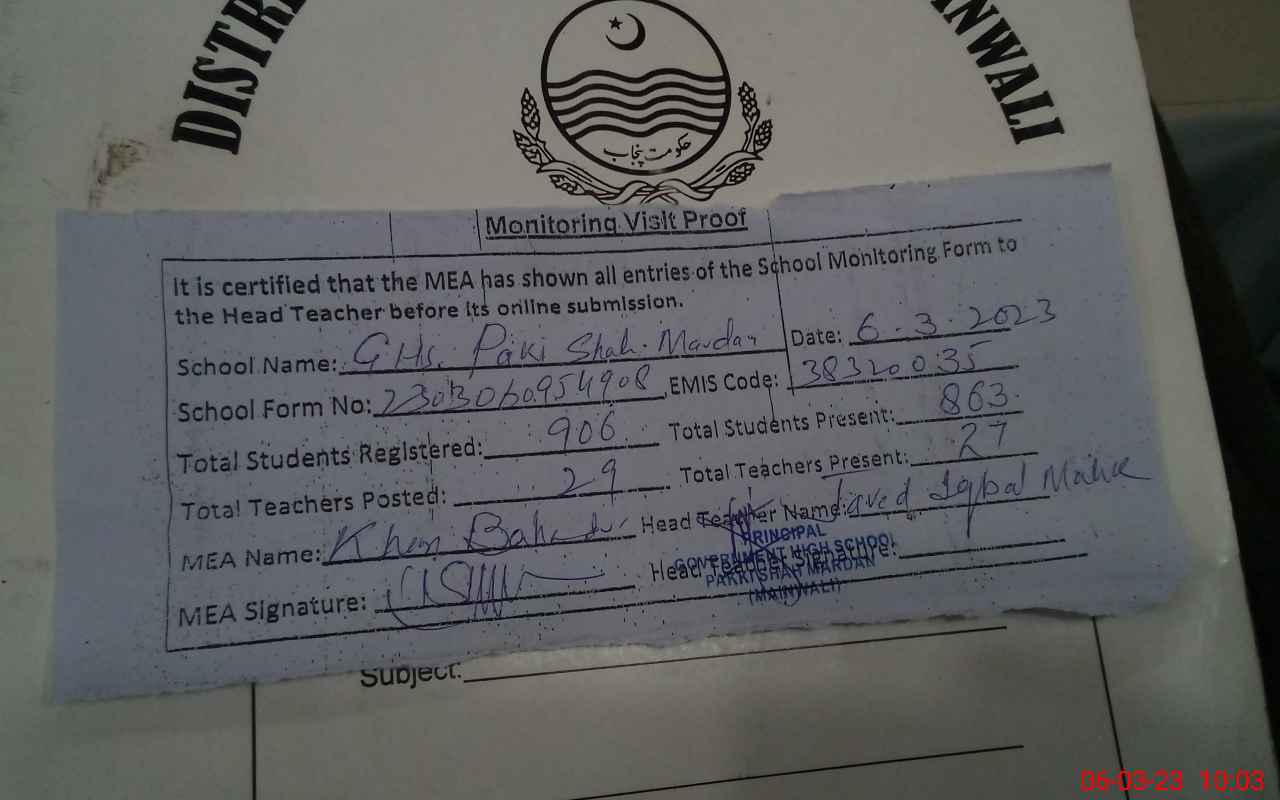 DISTR ANWALI
حکومت پنجاب
Monitoring Visit Proof
It is certified that the MEA has shown all entries of the School Monitoring Form to
the Head Teacher before its online submission.
School Name: GHS. Paki Shah. Mardan Date: 6.3.2023
School Form No: 2303060954908 EMIS Code: 38320035
Total Students Registered: 906 Total Students Present: 863
Total Teachers Posted: 29 Total Teachers Present: 27
MEA Name: Khan Bahadur Head Teacher Name: Javed Iqbal Malik
PRINCIPAL
GOVERNMENT HIGH SCHOOL
MEA Signature: Head Teacher Signature:
PAKKI SHAH MARDAN
(MAINWALI)
Subject:
06-03-23 10:03